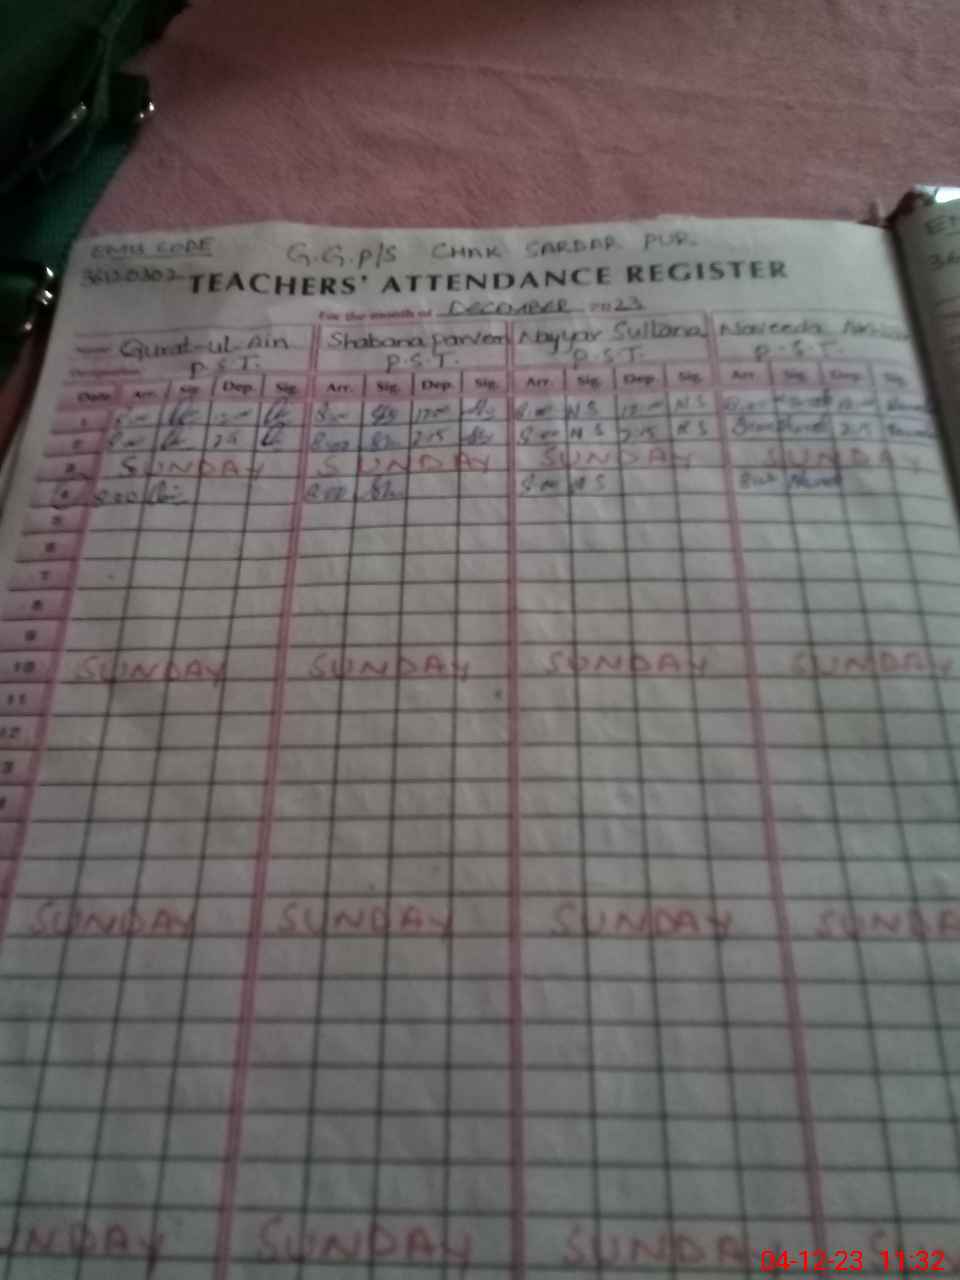 EMIS CODE G.G.P/S CHAK SARDAR PUR.
36120302 TEACHERS' ATTENDANCE REGISTER
For the month of DECEMBER 2023
Name Qurat-ul-Ain Shabana Parveen Nayyar Sultana Naveeda
Designation P.S.T. P.S.T. P.S.T. P.S.T.
Date Arr. Sig. Dep. Sig. Arr. Sig. Dep. Sig. Arr. Sig. Dep. Sig. Arr. Sig. Dep. Sig.
1 8:00 12:00 8:00 12:00 8:00 N S 12:00 N S
2 8:00 2:15 8:00 2:15 8:00 N S 2:15 N S 2:15
3 SUNDAY SUNDAY SUNDAY SUNDAY
4 8:00 8:00 8:00 N S
5
6
7
8
9
10 SUNDAY SUNDAY SUNDAY SUNDAY
11
12
3
SUNDAY SUNDAY SUNDAY SUNDAY
NDAY SUNDAY SUNDAY
04-12-23 11:32